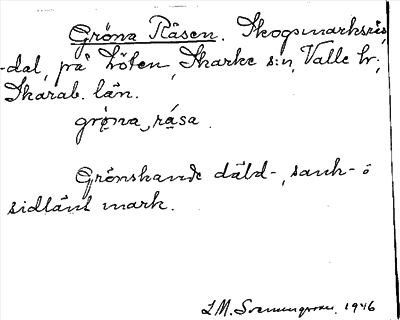 Gröna Råsen. Skogsmarksrås
-dal, på Höten, Skarke s:n, Valle hr.,
Skarab. län.
grøna, råsa.
Grönskande däld-, sank- o
sidlänt mark.
L.M. Svennungsson, 1946